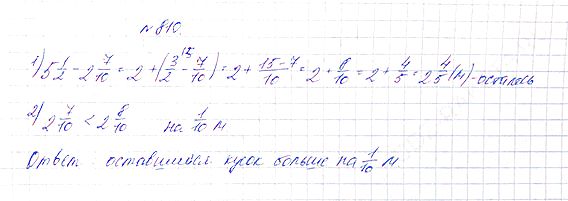 № 810.
1) 5 1/2 - 2 7/10 = 2 + (3/2 ¹⁵ - 7/10) = 2 + 15-7/10 = 2 + 8/10 = 2 + 4/5 = 2 4/5 (м) - осталось
2) 2 7/10 < 2 8/10 на 1/10 м
Ответ: оставшийся кусок больше на 1/10 м